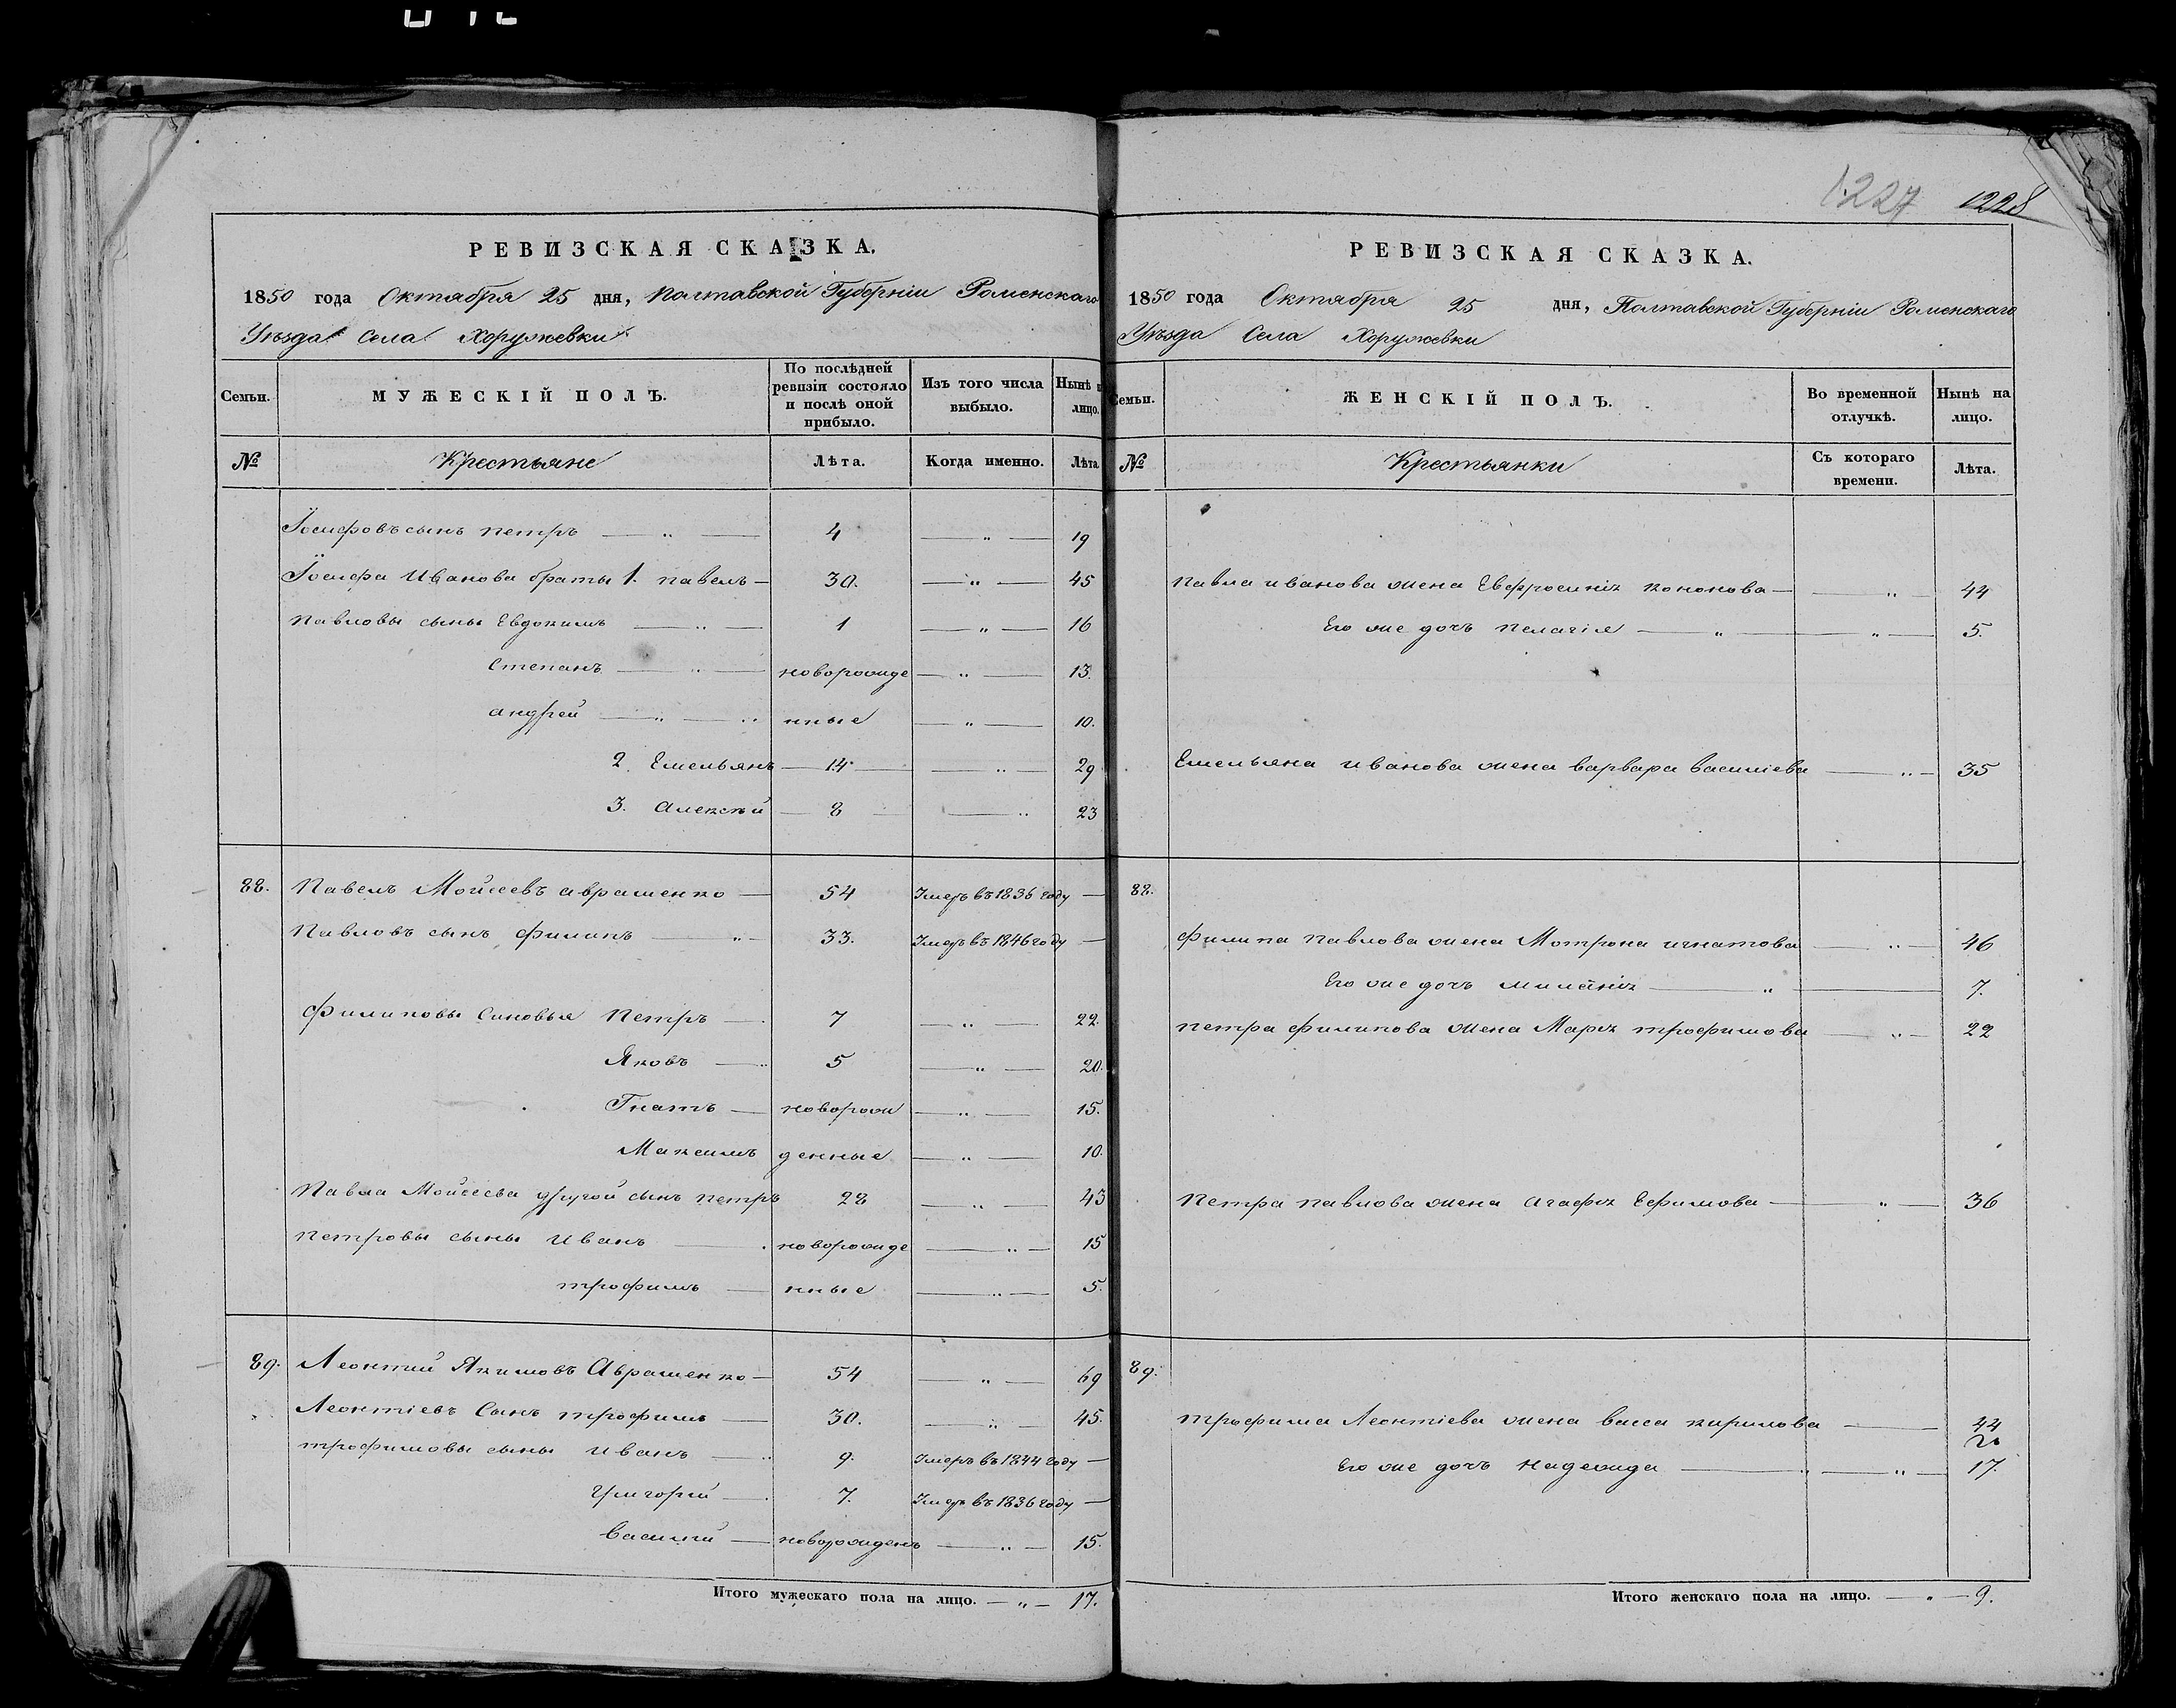 РЕВИЗСКАЯ СКАЗКА.
1850 года Октября 25 дня, Полтавской Губерніи Роменскаго
Уѣзда Села Хоружевки
Семьи.
МУЖЕСКІЙ ПОЛЪ.
По послѣдней ревизіи состояло и послѣ оной прибыло.
Изъ того числа выбыло.
Нынѣ н лицо.
№ Крестьяне Лѣта. Когда именно. Лѣта
Іосифовъ сынъ петръ — „ — 4 — „ — 19
Іосифа Иванова браты 1. павелъ — 30. — „ — 45
павловы сыны Евдокимъ — „ — 1 — „ — 16
Степанъ — „ — новорожде — „ — 13.
андрей — „ — „ нные — „ — 10.
2. Емельянъ — 14 — „ — 29
3. алексѣй — 8 — „ 23
88. Павелъ Мойсеевъ аврашенко — 54 Умеръ въ 1836 году —
Павловъ сынъ филипъ — „ — 33. Умеръ въ 1846 году —
филиповы синовья Петръ — 7 — „ — 22.
Яковъ — „ 5 — „ — 20.
Гнатъ — новорож — „ — 15.
Максимъ денные — „ — 10.
Павла Мойсеева другой сынъ петръ 28 — „ — 43
петровы сыны иванъ — новорожде — „ — 15
трофимъ — нные — „ — 5.
89. Леонтий Якимовъ Аврашенко — 54 — „ — 69
Леонтіевъ Сынъ трофимъ — 30. — „ — 45.
трофимовы сыны иванъ — „ 9. Умеръ въ 1844 году —
григорий — 7. Умеръ въ 1836 году —
василий — новорожденъ — „ — 15.
Итого мужескаго пола на лицо. — „ — 17.
1227 1228
РЕВИЗСКАЯ СКАЗКА.
1850 года Октября 25 дня, Полтавской Губерніи Роменскаго
Уѣзда Села Хоружевки
Семьи.
ЖЕНСКІЙ ПОЛЪ.
Во временной отлучкѣ.
Нынѣ на лицо.
№ Крестьянки Съ котораго времени. Лѣта.
павла иванова жена Евфросинія кононова — — „ — 44
Его же дочъ пелагія — „ — — „ — 5.
Емельяна иванова жена варвара василіева — „ — 35
88.
филипа павлова жена Мотрона игнатова — „ — 46
Его же дочъ — „ — 7.
петра филипова жена Марія трофимова — „ — 22
петра павлова жена агафія Ефимова — „ — 36
89.
трофима Леонтіева жена васса кирилова — 44
Его же дочъ надежда — „ — „ — 17.
Итого женскаго пола на лицо. — „ — 9.